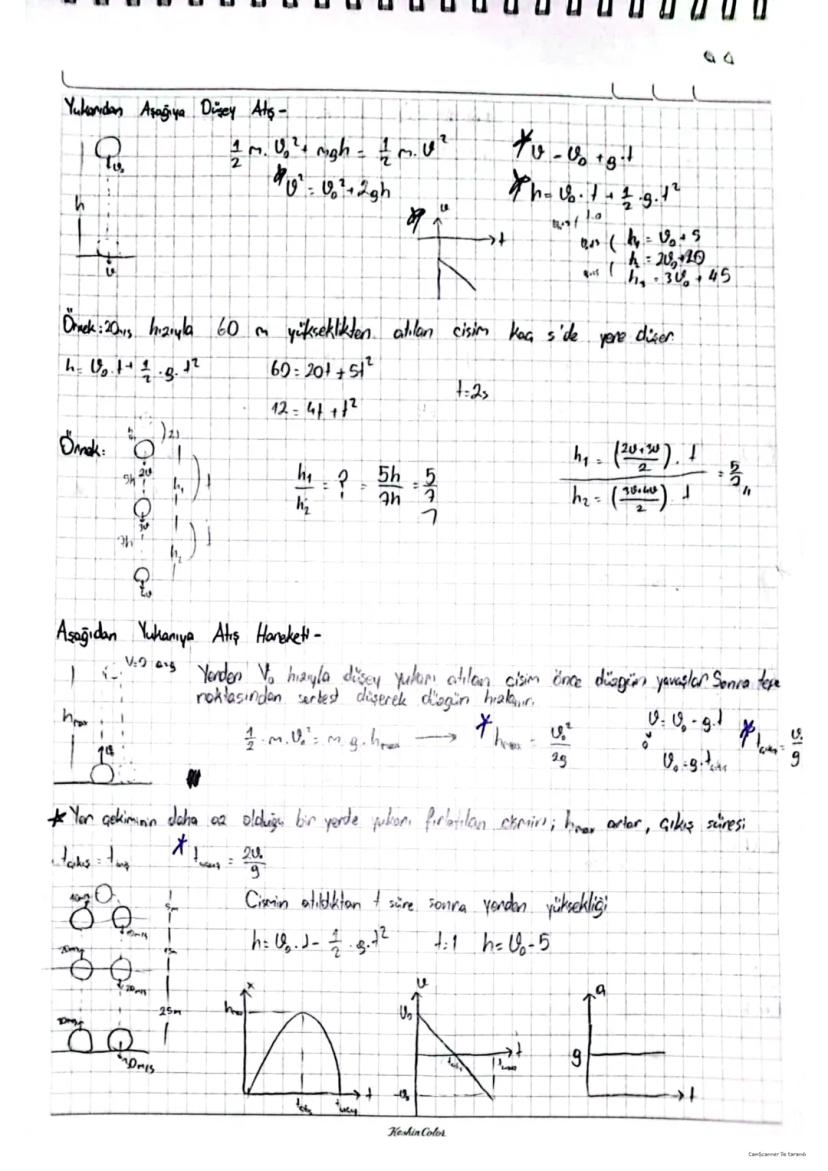 Yukarıdan Aşağıya Düşey Atış -
1/2 m. v₀² + mgh = 1/2 m. v²
v² = v₀² + 2gh
v = v₀ + g.t
h = v₀.t + 1/2 .g.t²
h
v₀
v
v
t
h₁ = v₀ + 5
h₂ = 2v₀ + 20
h₃ = 3v₀ + 45
Örnek: 20m/s hızıyla 60 m yükseklikten atılan cisim kaç s'de yere düşer
h = v₀.t + 1/2 .g.t²
60 = 20t + 5t²
12 = 4t + t²
t = 2s
Örnek:
5h
2v
h₁
t
3v
7h
h₂
4v
h₁/h₂ = ? = 5h/7h = 5/7
h₁ = (2v+3v/2) . t
h₂ = (3v+4v/2) . t
= 5/7
Aşağıdan Yukarıya Atış Hareketi -
V=0
hmax
Yerden V₀ hızıyla düşey yukarı atılan cisim önce düzgün yavaşlar Sonra tepe
noktasından serbest düşerek düzgün hızlanır.
1/2 .m.v₀² = m.g.hmax → hmax = v₀²/2g
v = v₀ - g.t
0
v₀ = g.tçıkış
tçıkış = v₀/g
* Yer çekiminin daha az olduğu bir yerde yukarı fırlatılan cismin; hmax artar, çıkış süresi
tçıkış = tiniş
tuçuş = 2v₀/g
Cismin atıldıktan t süre sonra yerden yüksekliği
h = v₀.t - 1/2 .g.t² t=1 h = v₀ - 5
10m/s
10m/s
5m
20m/s
20m/s
15m
25m
30m/s
30m/s
x
hmax
tçıkış
tuçuş
t
v
v₀
-v₀
tçıkış
tuçuş
t
a
g
t
KeskinColor
CamScanner ile tarandı